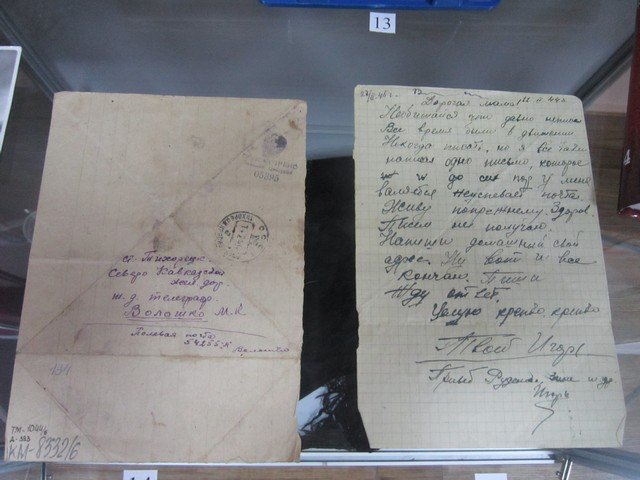 13
05895
ст. Тихорецк.
Северо Кавказской
жел. дор.
ж. д. телеграф.
Волошко М. К
Полевая почта
54255 К
Волошко
КМ-8332/6
Дорогая мама!
Необижайся что давно неписал
Все время были в движении
Некогда писать, но я все таки
написал одно письмо, которое
и до сих пор у меня
валяется неуспевает почта.
Живу попрежнему. Здоров.
Писем не получаю.
Напиши домашний свой
адрес. Ну вот и все
кончаю. Пиши
Жду ответ.
Целую крепко, крепко
Твой Игорь
Привет
Игорь